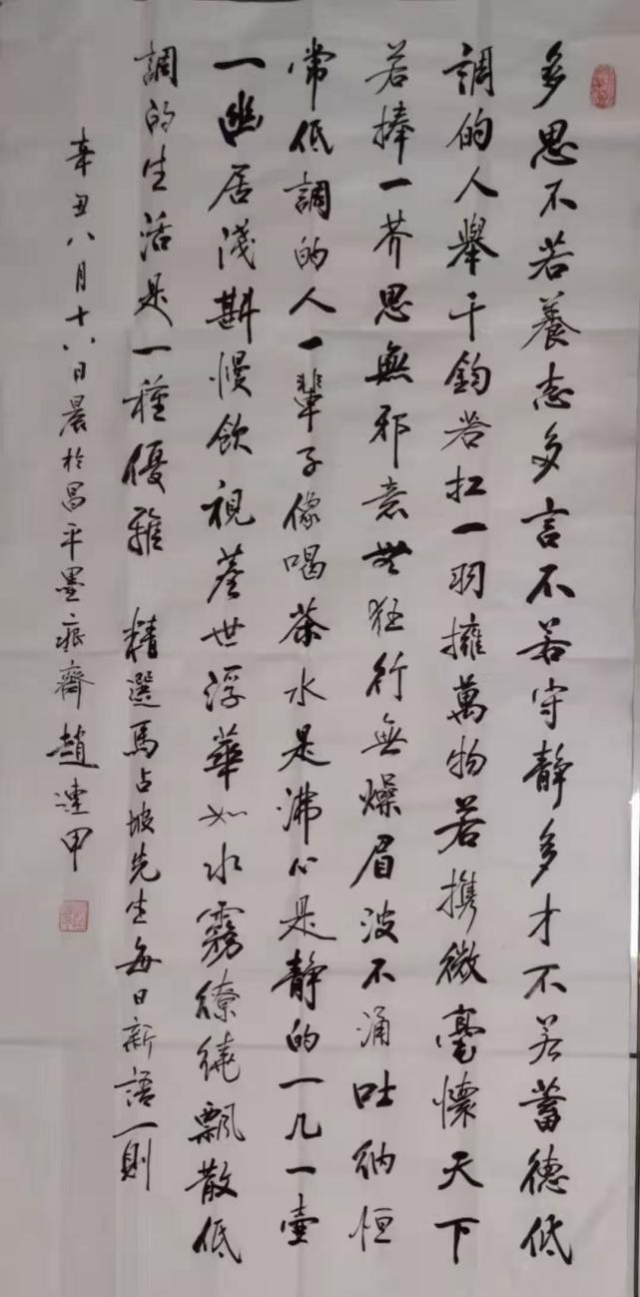 多思不若養志多言不若守靜多才不若蓄德低
調的人舉千鈞若扛一羽擁萬物若携微毫懷天下
若捧一芥思無邪意無狂行無燥眉波不涌吐纳恒
常低調的人一輩子像喝茶水是沸心是静的一几一壺
一幽居淺斟慢飲視塵世浮華如水霧繚繞飄散低
調的生活是一種優雅 精選馬占坡先生每日新語一則
辛丑八月十八日晨於昌平墨痕齋趙連甲